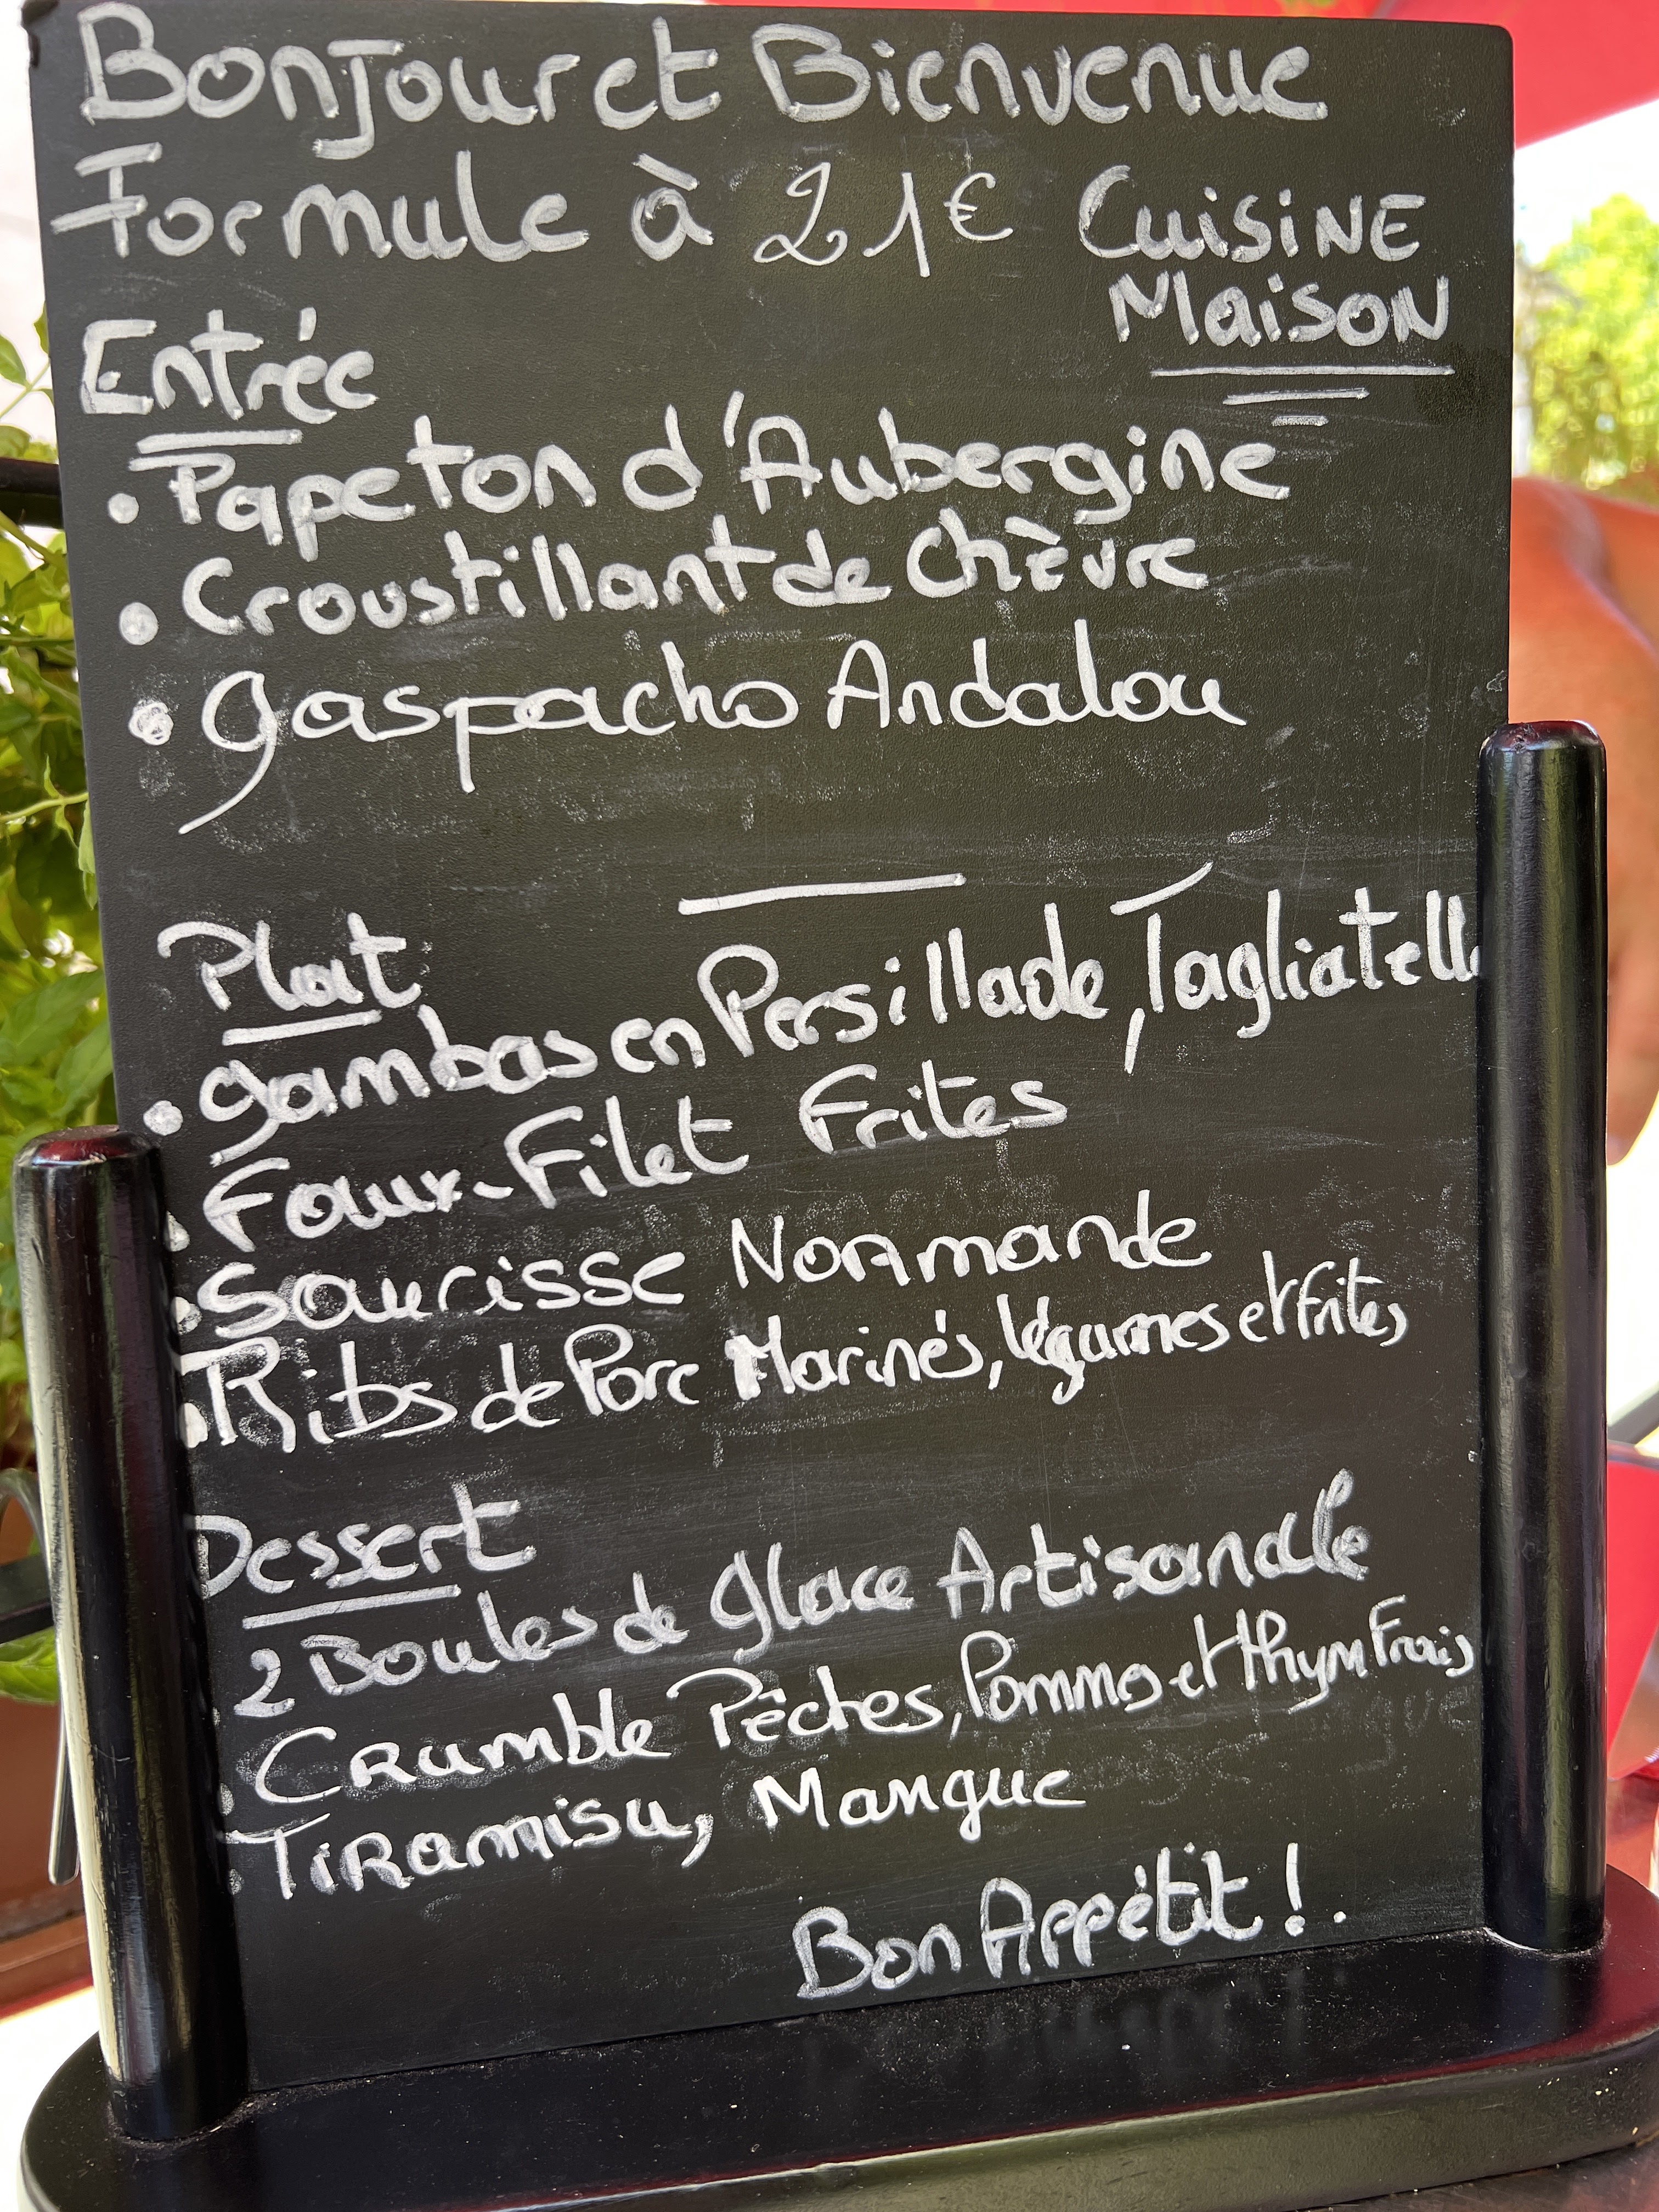 Bonjour et Bienvenue
Formule à 21€ Cuisine
Maison
Entrée
• Papeton d'Aubergine
• Croustillant de Chèvre
• Gaspacho Andalou
Plat
• Gambas en Persillade, Tagliatelle
• Faux-Filet Frites
• Saucisse Normande
• Ribs de Porc Marinés, légumes et frites
Dessert
2 Boules de Glace Artisanale
• Crumble Pêches, Pommes et thym Frais
• Tiramisu, Mangue
Bon Appétit !.